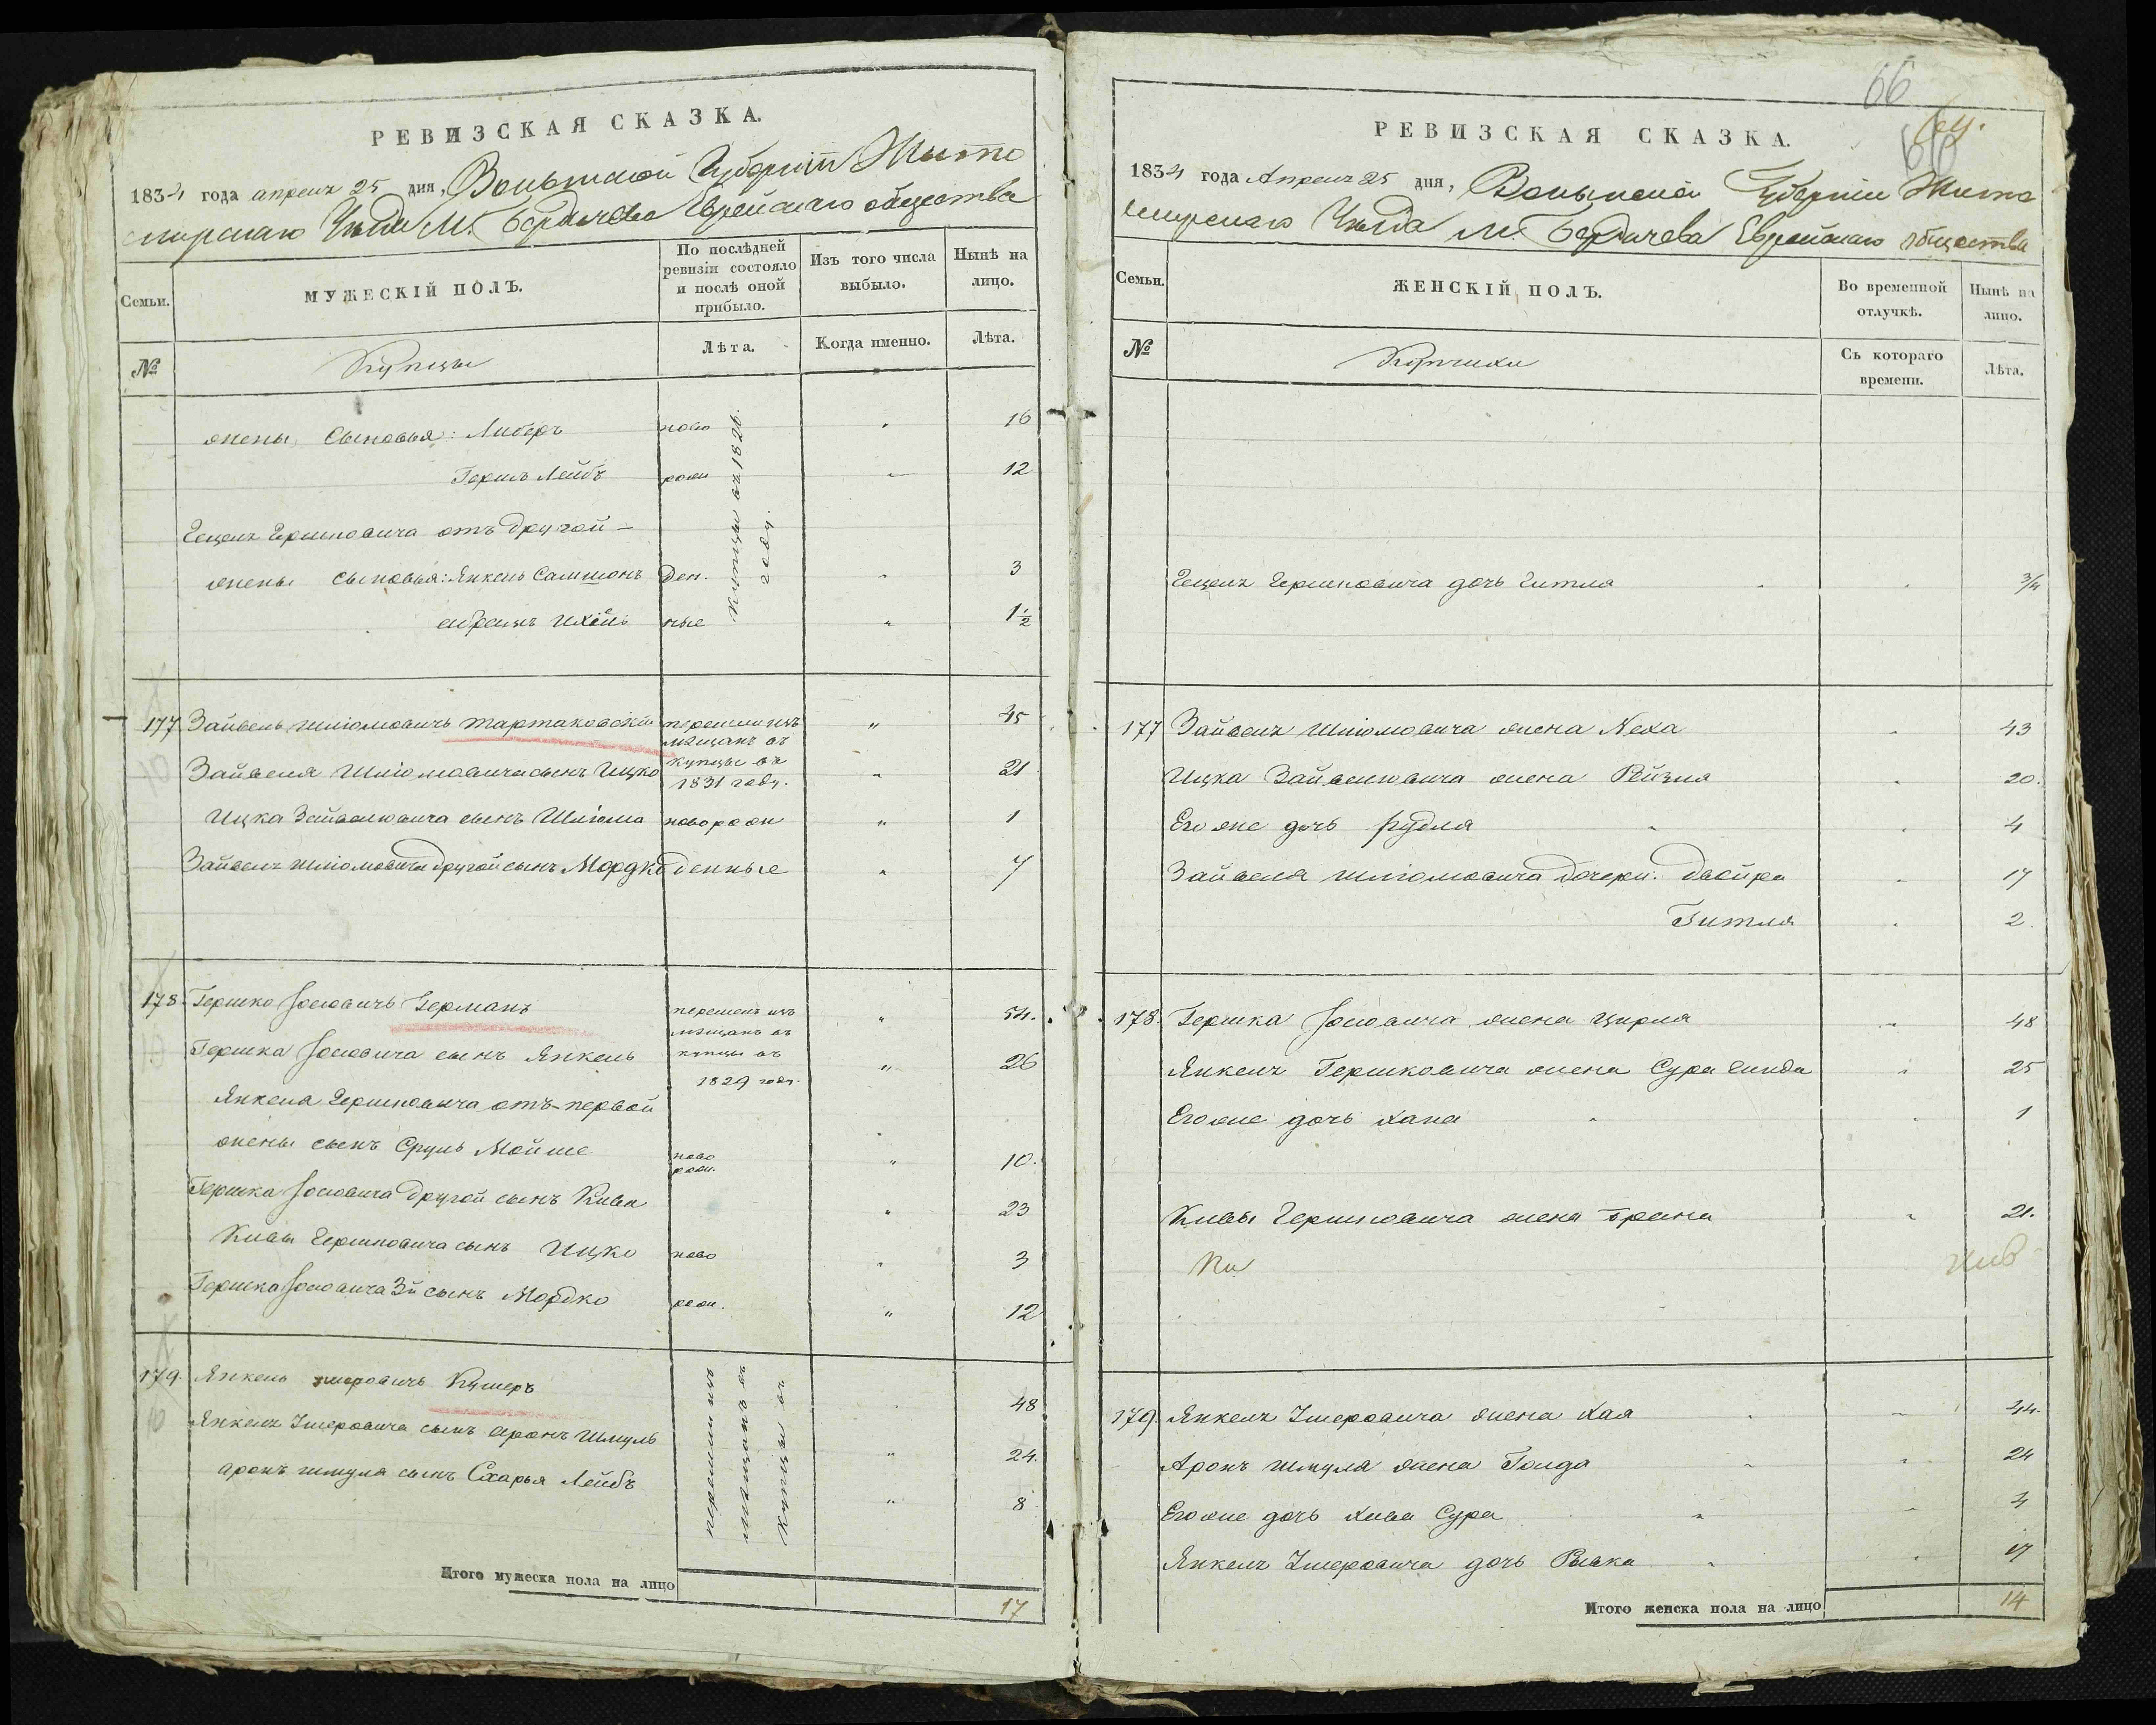 РЕВИЗСКАЯ СКАЗКА.
1834 года апреля 25 дня, Волынской Губерніи Жито
мирскаго Уѣзда М. Бердичева Еврейскаго общества
Семьи.
МУЖЕСКІЙ ПОЛЪ.
По послѣдней ревизіи состояло и послѣ оной прибыло.
Изъ того числа выбыло.
Нынѣ на лицо.
№
Купцы
Лѣта.
Когда именно.
Лѣта.
жены сыновья: Либеръ ново 16
Гершъ Лейбъ рож 12
Гецеля Гершковича отъ другой
жены сыновья: Янкель Самшонъ ден. 3
Ихель ные 1½
купцы въ 1826.
году.
177 Зайвель Шліомовичъ Тартаковскій перешли изъ " 45
мѣщанъ въ
Зайвеля Шліомовича сынъ Ицко купцы въ " 21
1831 году.
Ицка Зайвелювича сынъ Шліома новорож " 1
Зайвеля Шліомовича другой сынъ Мордко денные " 7
178 Гершко Іосіовичъ Германъ перешелъ изъ " 54.
мѣщанъ въ
Гершка Іосіовича сынъ Янкель купцы въ " 26
1829 году.
Янкеля Гершковича отъ первой
жены сынъ Сруль Мойше ново рож. " 10.
Гершка Іосіовича другой сынъ Кива " 23
Кивы Гершковича сынъ Ицко ново " 3
Гершка Іосіовича 3й сынъ Мордко рож. " 12
179. Янкель Кушеръ 48
Янкеля сынъ Аронъ Шмуль " 24.
Аронъ Шмуля сынъ Схарья Лейбъ " 8
перешли изъ
мѣщанъ въ
купцы въ
Итого мужеска пола на лицо 17
66
РЕВИЗСКАЯ СКАЗКА.
1834 года Апреля 25 дня, Волынской Губерніи Жито
мирскаго Уѣзда М. Бердичева Еврейскаго общества
Семьи.
ЖЕНСКІЙ ПОЛЪ.
Во временной отлучкѣ.
Нынѣ на лицо.
№
Купчихи
Съ котораго времени.
Лѣта.
Гецеля Гершковича дочь Гитля 3/4
177 Зайвеля Шліомовича жена Неха 43
Ицка Зайвелювича жена Рейзля 20.
Его же дочь Рудля 4
Зайвеля Шліомовича дочери: Двойра 17
Гитля 2.
178. Гершка Іосіовича жена Цирля 48
Янкеля Гершковича жена Сура Синда 25
Его же дочь Хана 1
Кивы Гершковича жена Брана 21.
179. Янкеля жена Хая 44.
Аронъ Шмуля жена Голда 24
Его же дочь Хива Сура 4
Янкеля дочь Рывка 17
Итого женска пола на лицо 14